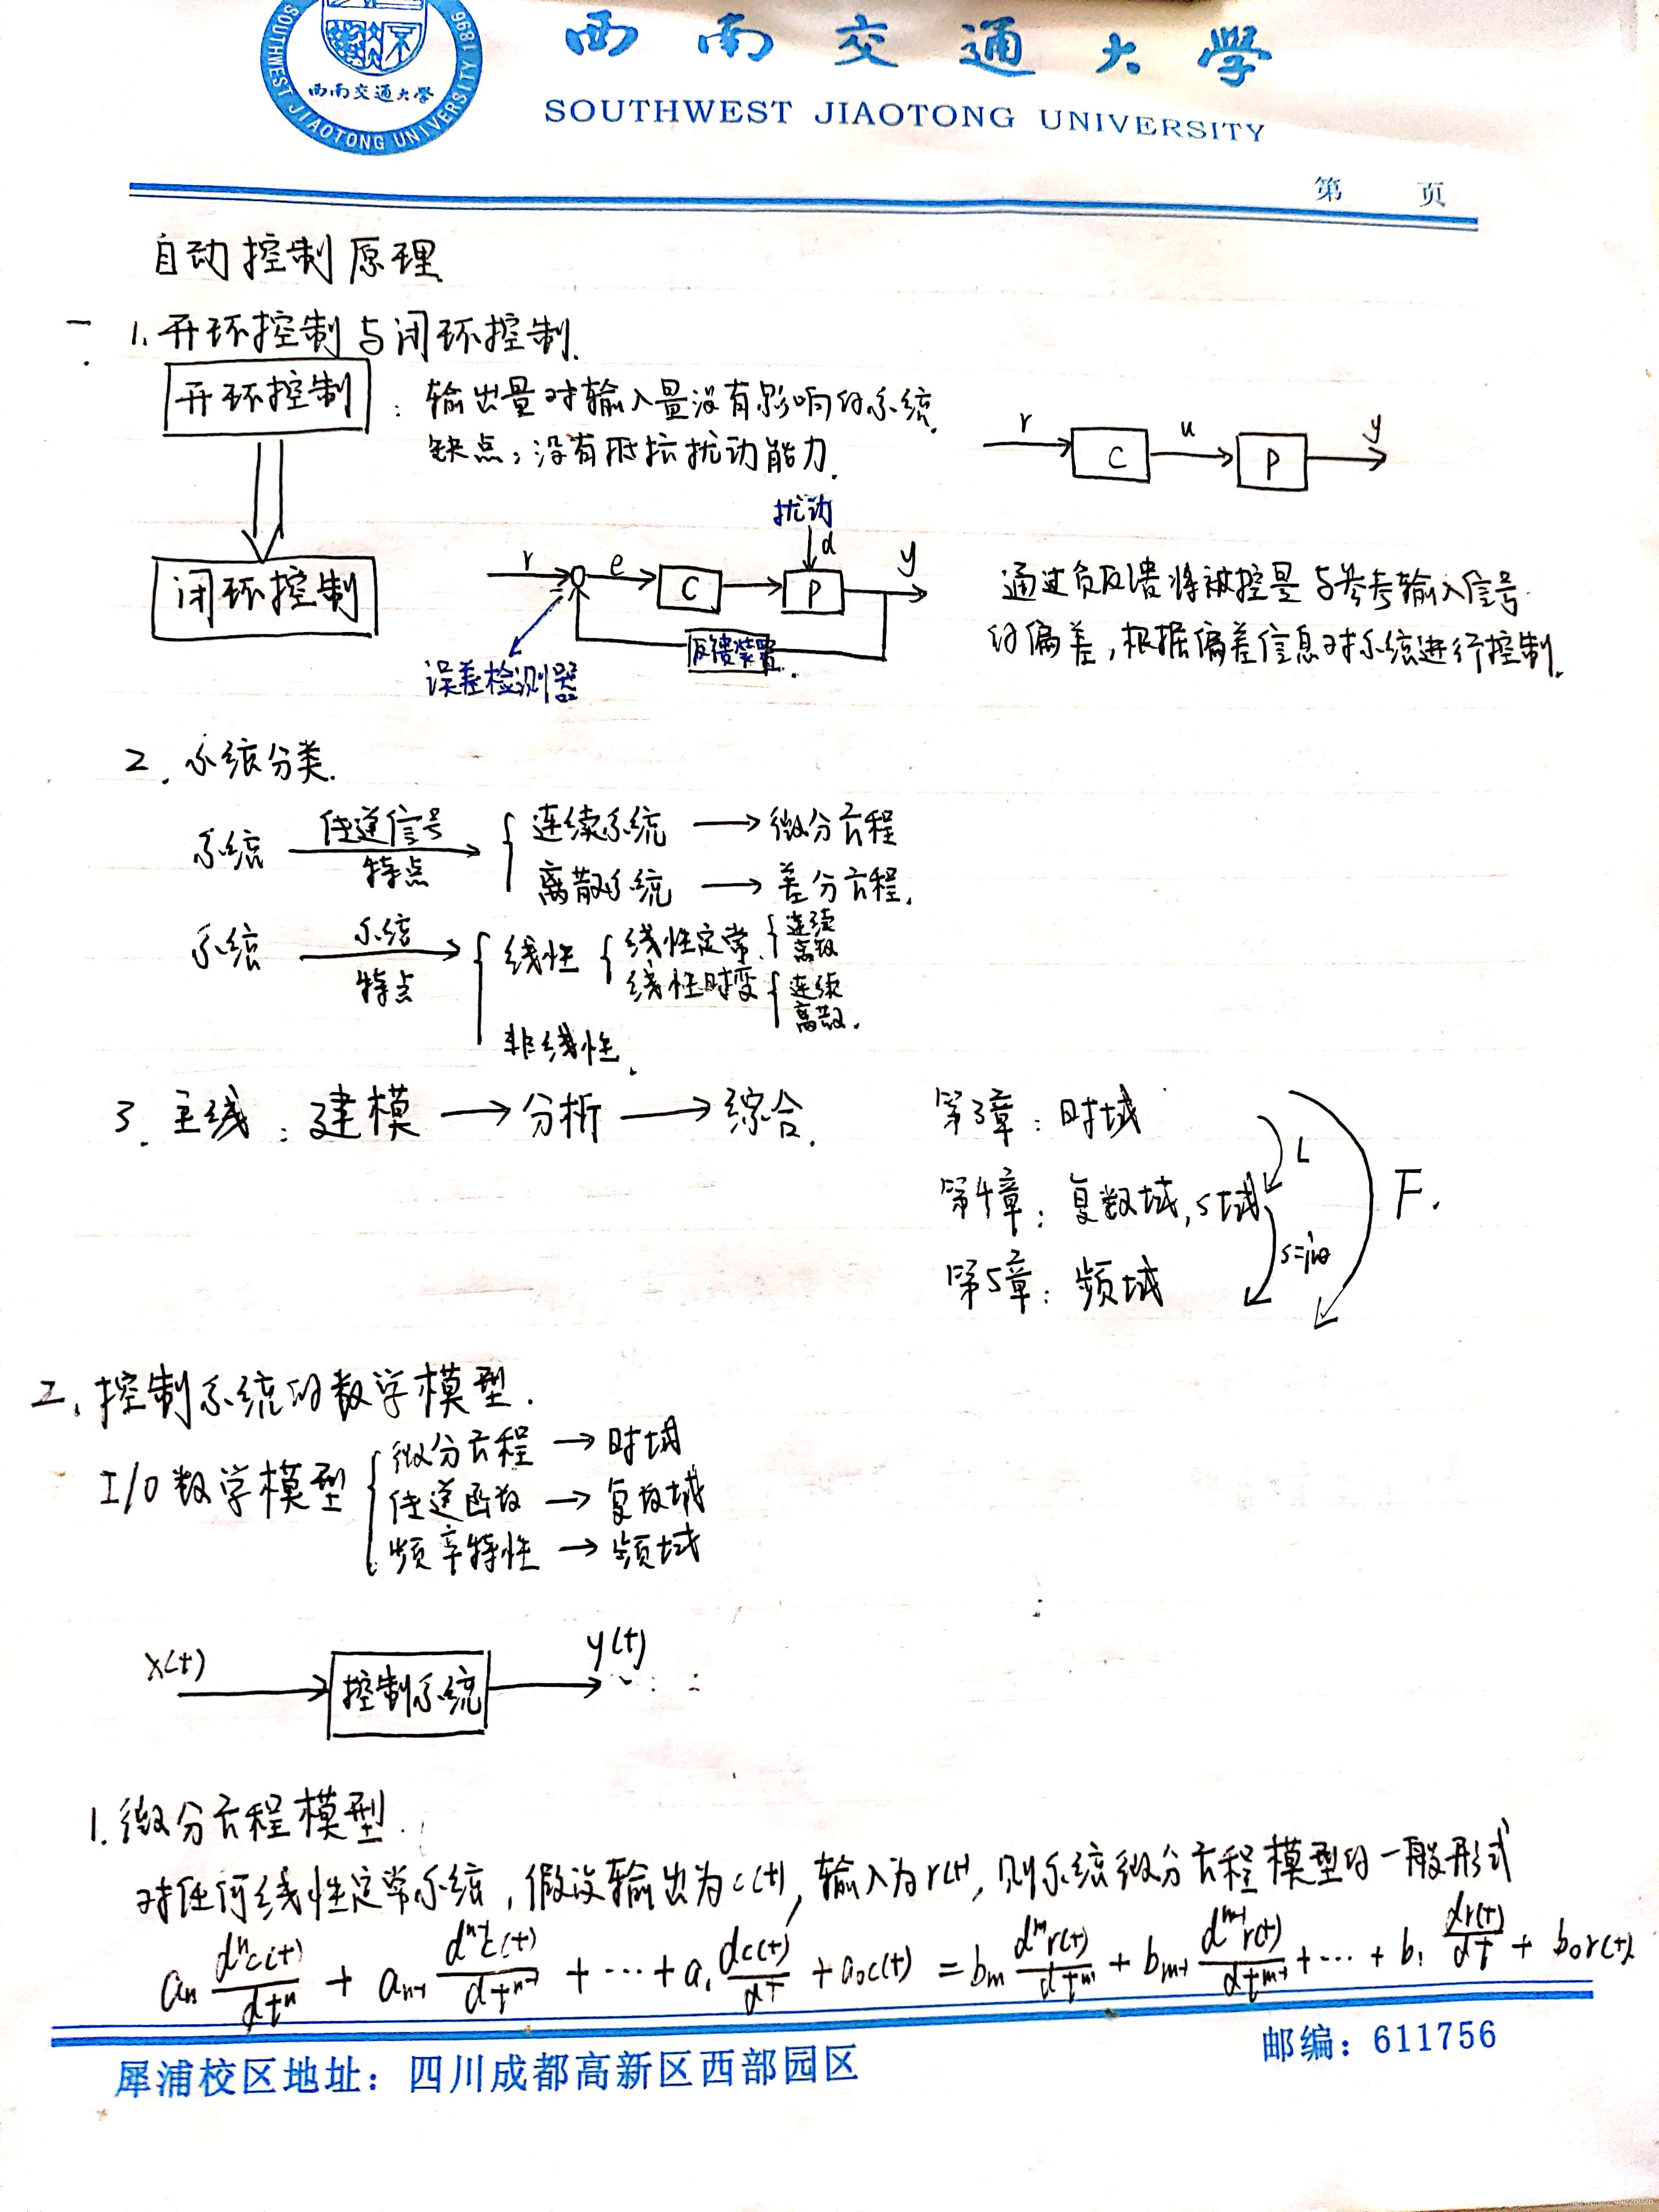 西南交通大學
SOUTHWEST JIAOTONG UNIVERSITY
西南交通大學
SOUTHWEST JIAOTONG UNIVERSITY 1896
第 页
自动控制原理
一. 1. 开环控制与闭环控制.
开环控制 : 输出量对输入量没有影响的系统.
缺点: 没有抵抗扰动能力.
r C u P y
扰动
d
闭环控制
r e C P y
反馈装置.
误差检测器
通过负反馈将被控量与参考输入信号
的偏差, 根据偏差信息对系统进行控制.
2. 系统分类.
系统 传递信号 特点 { 连续系统 → 微分方程
离散系统 → 差分方程.
系统 系统 特点 { 线性 { 线性定常. { 连续 离散
线性时变 { 连续 离散.
非线性.
3. 主线: 建模 → 分析 → 综合.
第3章: 时域
L
第4章: 复数域, s域
F.
s=jω
第5章: 频域
二. 控制系统的数学模型.
I/O数学模型 { 微分方程 → 时域
传递函数 → 复数域
频率特性 → 频域
x(t) 控制系统 y(t)
1. 微分方程模型.
对任何线性定常系统, 假设输出为c(t), 输入为r(t), 则系统微分方程模型的一般形式
aₙ dⁿc(t)/dtⁿ + aₙ₋₁ dⁿ⁻¹c(t)/dtⁿ⁻¹ + ··· + a₁ dc(t)/dt + a₀c(t) = bₘ dᵐr(t)/dtᵐ + bₘ₋₁ dᵐ⁻¹r(t)/dtᵐ⁻¹ + ··· + b₁ dr(t)/dt + b₀r(t)
犀浦校区地址: 四川成都高新区西部园区
邮编: 611756